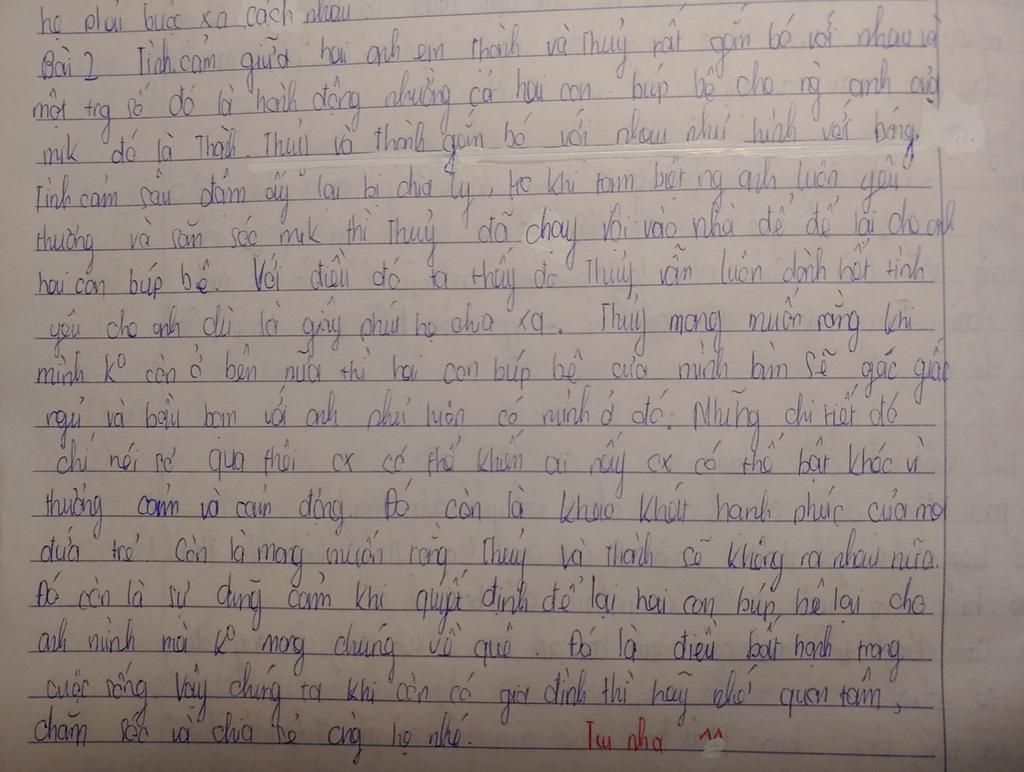 họ phải bước xa cách nhau
Bài 2 Tình cảm giữa hai anh em Thành và Thuỷ rất gắn bó với nhau và
một trg số đó là hành động nhường cả hai con búp bê cho ng anh của
mik đó là Thành. Thuỷ và Thành gắn bó với nhau như hình với bóng.
Tình cảm sâu đậm ấy lại bị chia ly, trc khi tạm biệt ng anh luôn yêu
thương và săn sóc mik thì Thuỷ đã chạy vội vào nhà để để lại cho anh
hai con búp bê. Với điều đó ta thấy đc Thuỷ vẫn luôn dành hết tình
yêu cho anh dù là giây phút họ chia xa. Thuỷ mong muốn rằng khi
mình ko còn ở bên nữa thì hai con búp bê của mình sẽ gác giấc
ngủ và bầu bạn với anh như luôn có mình ở đó. Những chi tiết đó
chỉ nói sơ qua thôi cx có thể khiến ai nấy cx có thể bật khóc vì
thương cảm và cảm động. Đó còn là khao khát hạnh phúc của mọi
đứa trẻ. Còn là mong muốn rằng Thuỷ và Thành sẽ không xa nhau nữa.
Đó còn là sự dũng cảm khi quyết định để lại hai con búp bê lại cho
anh mình mà ko mang chúng về quê. Đó là điều bất hạnh trong
cuộc sống. Vậy chúng ta khi còn có gia đình thì hãy nhớ quan tâm,
chăm sóc và chia sẻ cùng họ nhé. Tui nha ^^